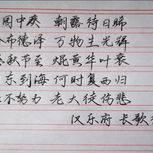 园中葵 朝露待日晞
布德泽 万物生光辉
秋节至 焜黄华叶衰
东到海 何时复西归
不努力 老大徒伤悲
汉乐府 长歌